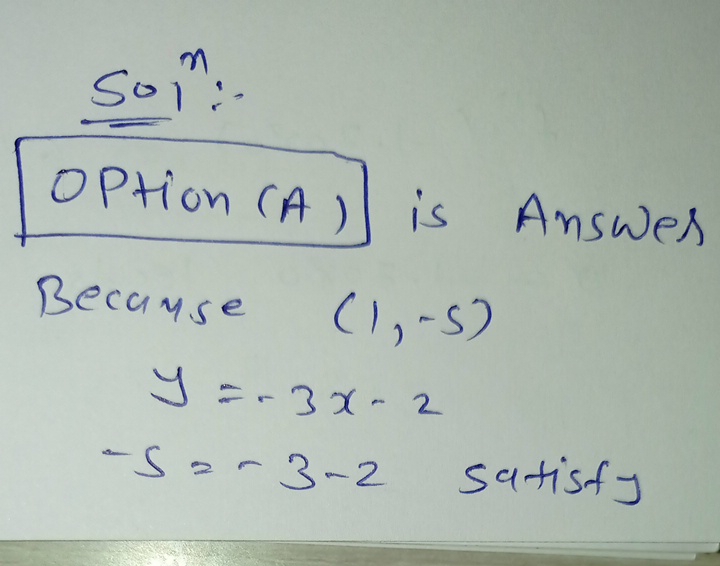 Solⁿ :-
Option (A) is Answer
Because (1, -5)
y = -3x - 2
-5 = -3-2 satisfy